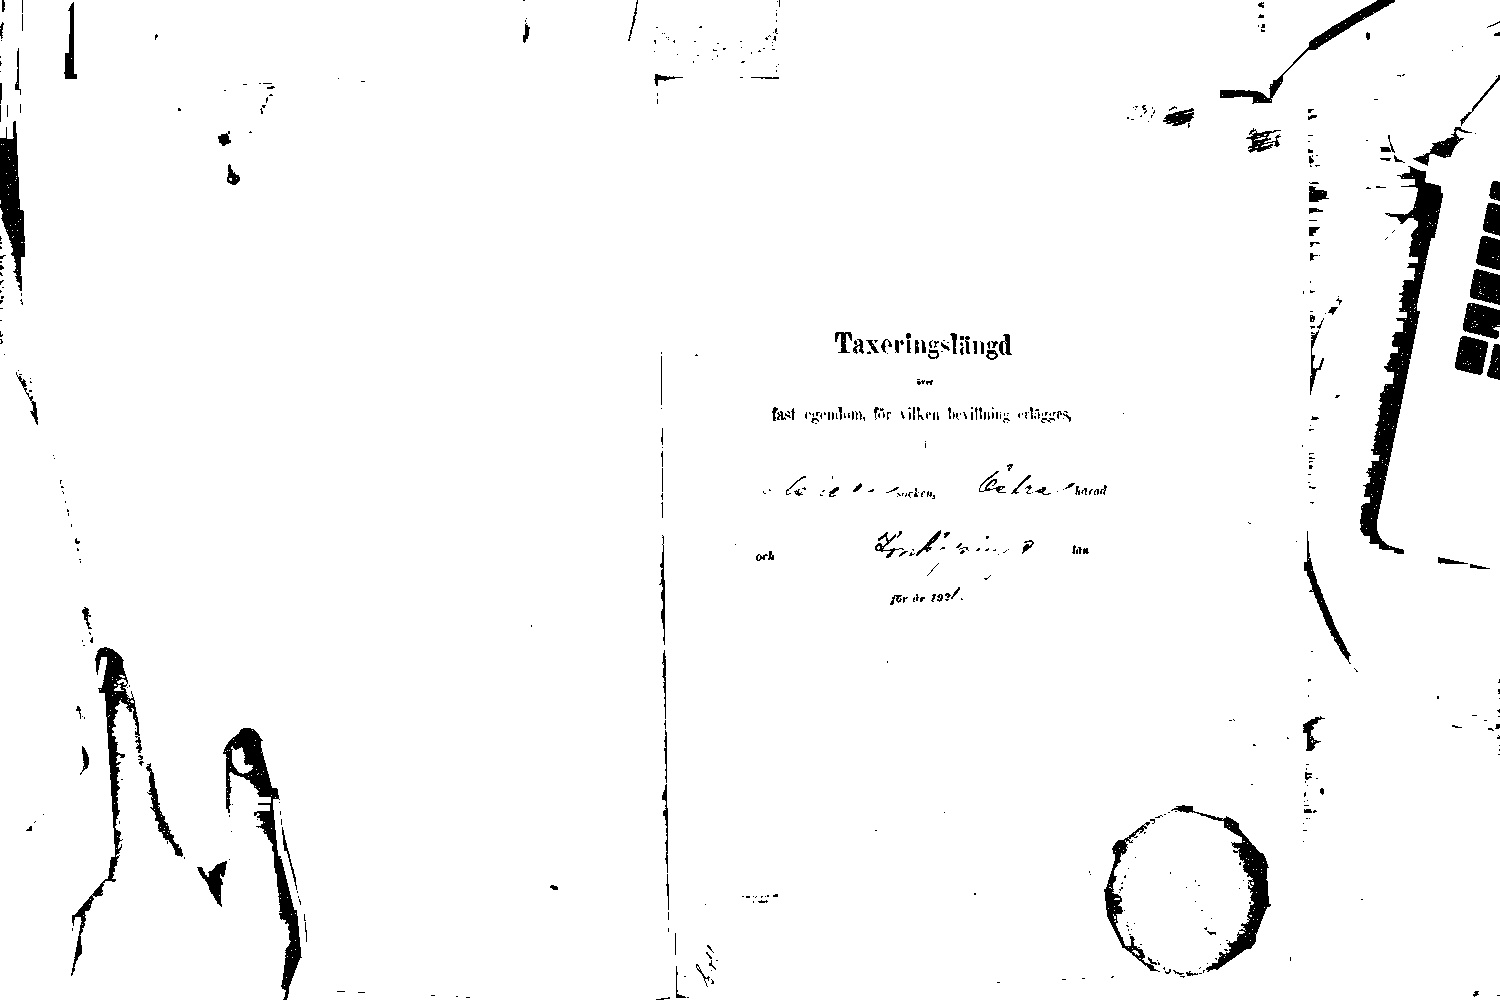 Taxeringslängd
över
fast egendom, för vilken bevillning erlägges,
i
socken, Östra härad
och Jönköpings län
för år 1921.